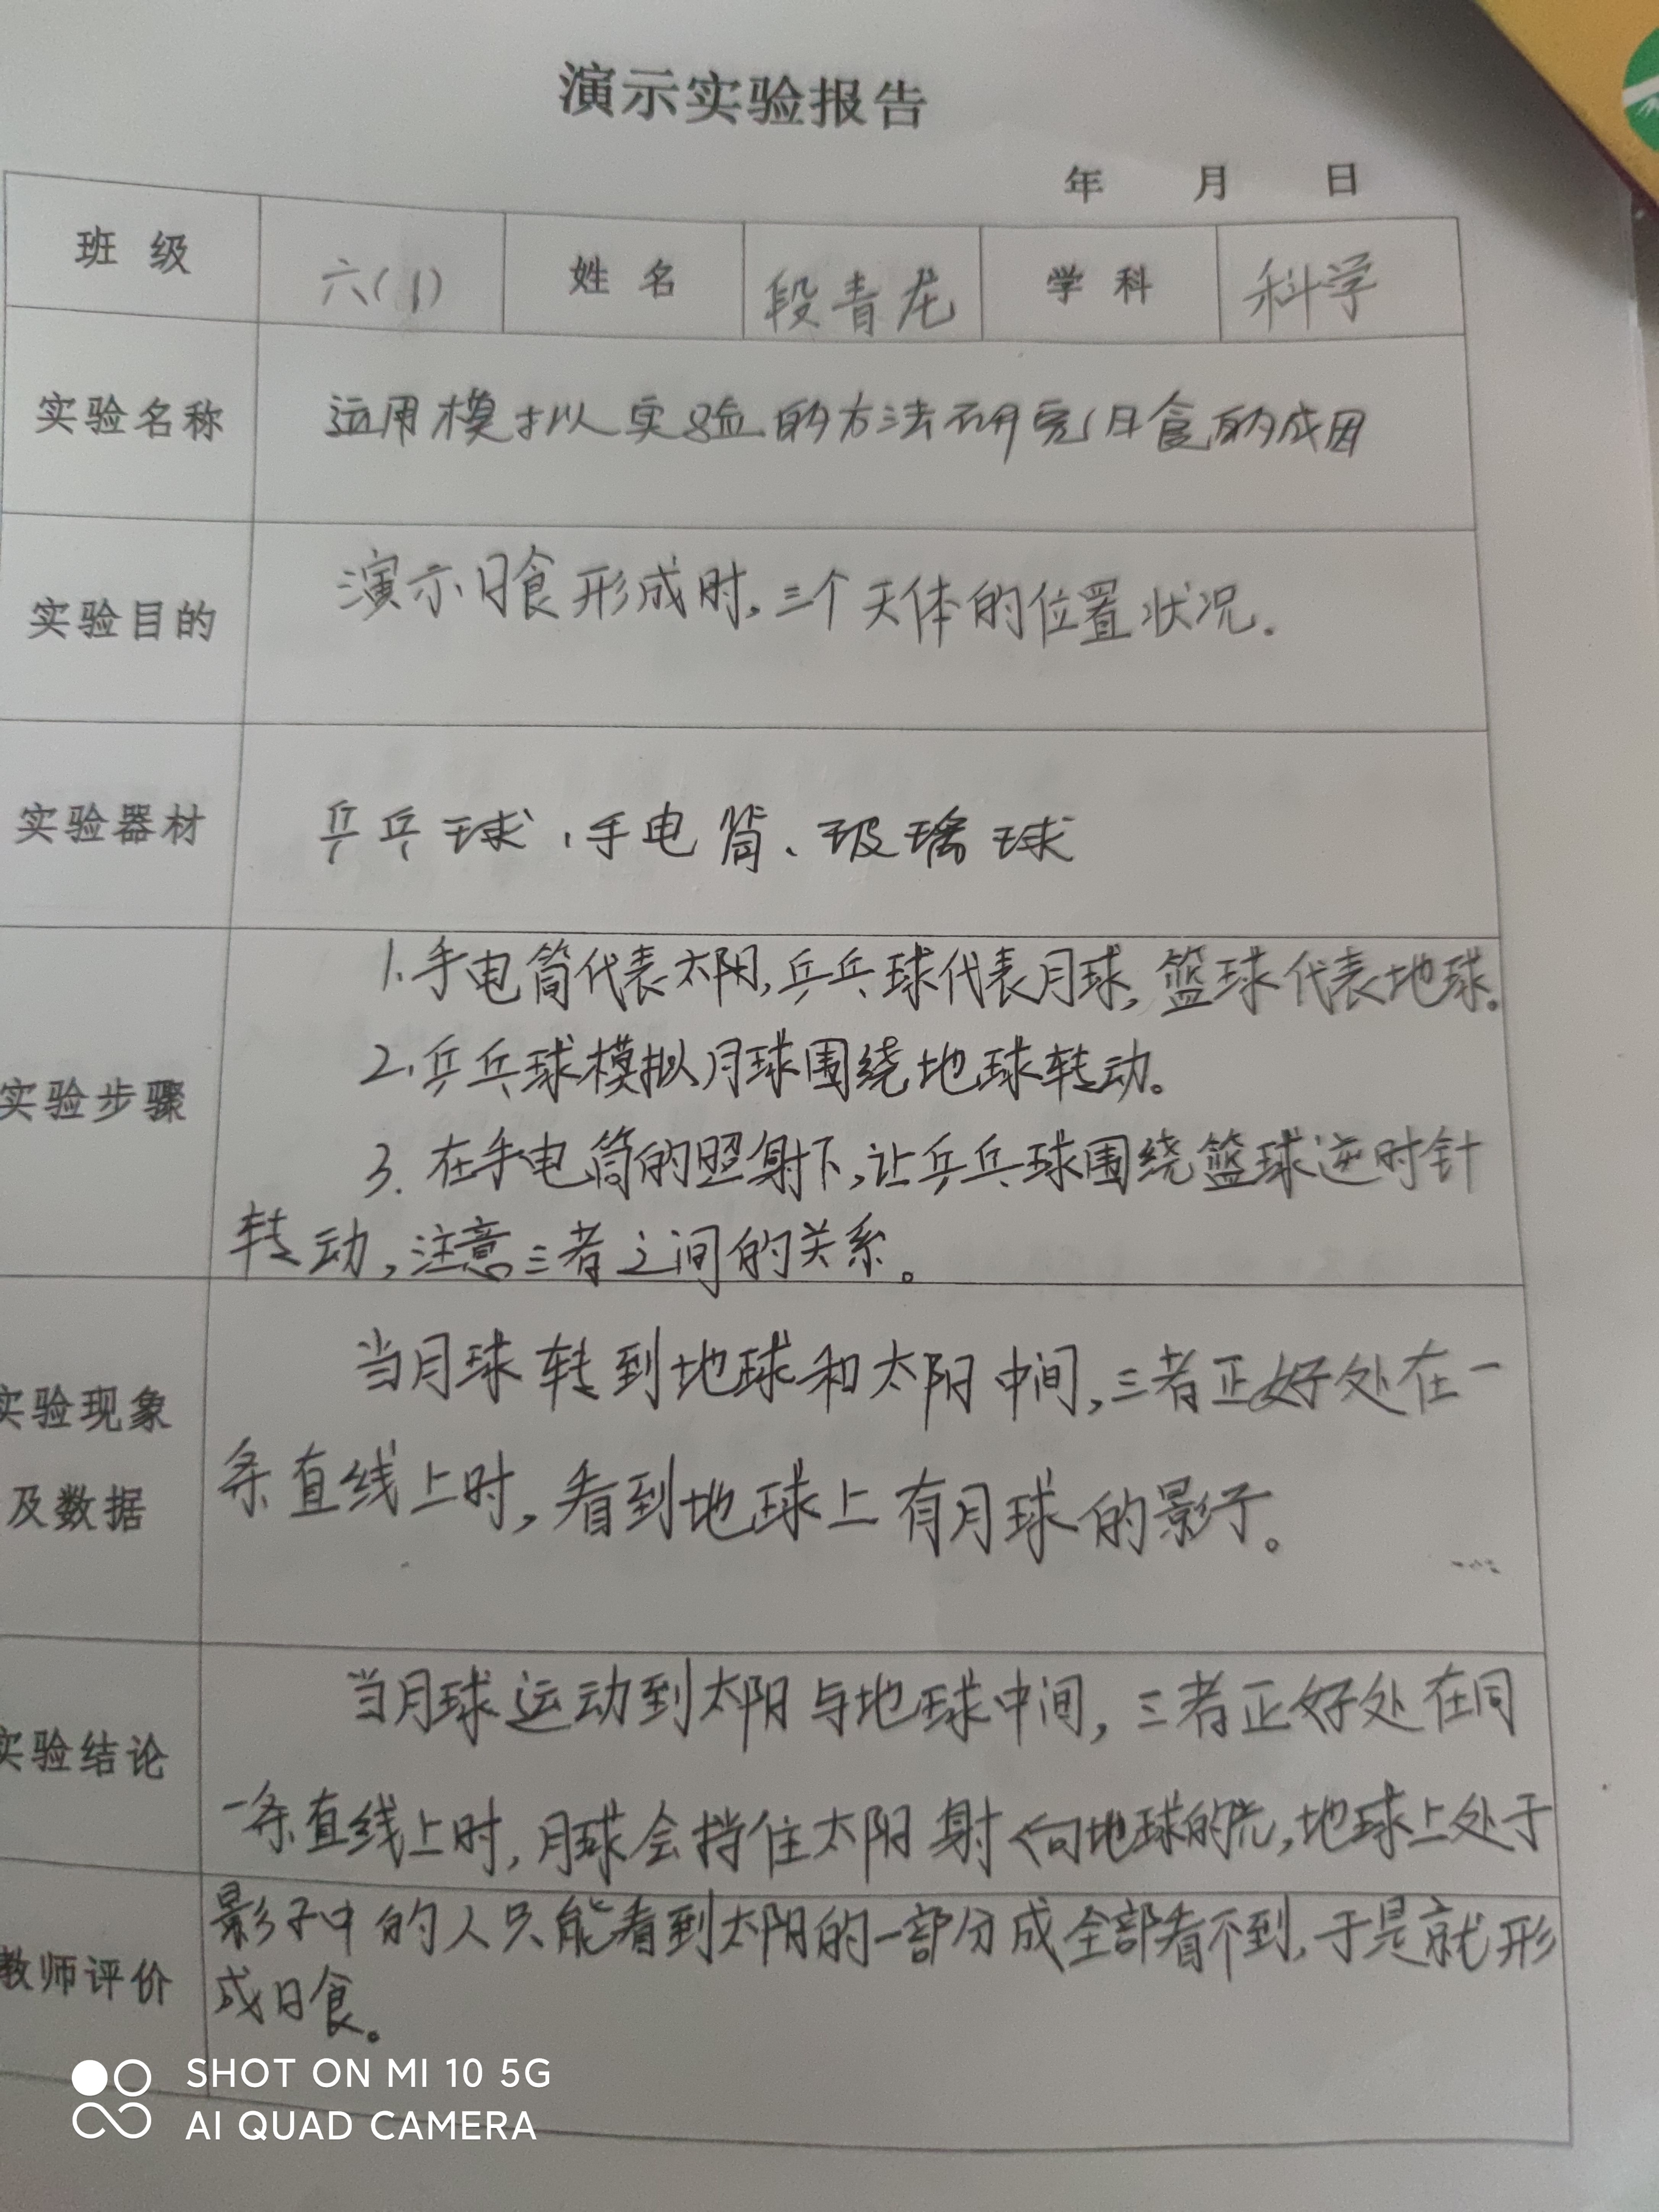 演示实验报告
年 月 日
班 级 六(1) 姓 名 段青龙 学 科 科学
实验名称 运用模拟实验的方法研究日食的成因
实验目的 演示日食形成时,三个天体的位置状况.
实验器材 乒乓球、手电筒、玻璃球
1.手电筒代表太阳,乒乓球代表月球,篮球代表地球。
2.乒乓球模拟月球围绕地球转动。
实验步骤
3.在手电筒的照射下,让乒乓球围绕篮球逆时针
转动,注意三者之间的关系。
当月球转到地球和太阳中间,三者正好处在一
实验现象
条直线上时,看到地球上有月球的影子。
及数据
当月球运动到太阳与地球中间,三者正好处在同
实验结论
一条直线上时,月球会挡住太阳射向地球的光,地球上处于
影子中的人只能看到太阳的一部分或全部看不到,于是就形
教师评价
成日食。
SHOT ON MI 10 5G
AI QUAD CAMERA